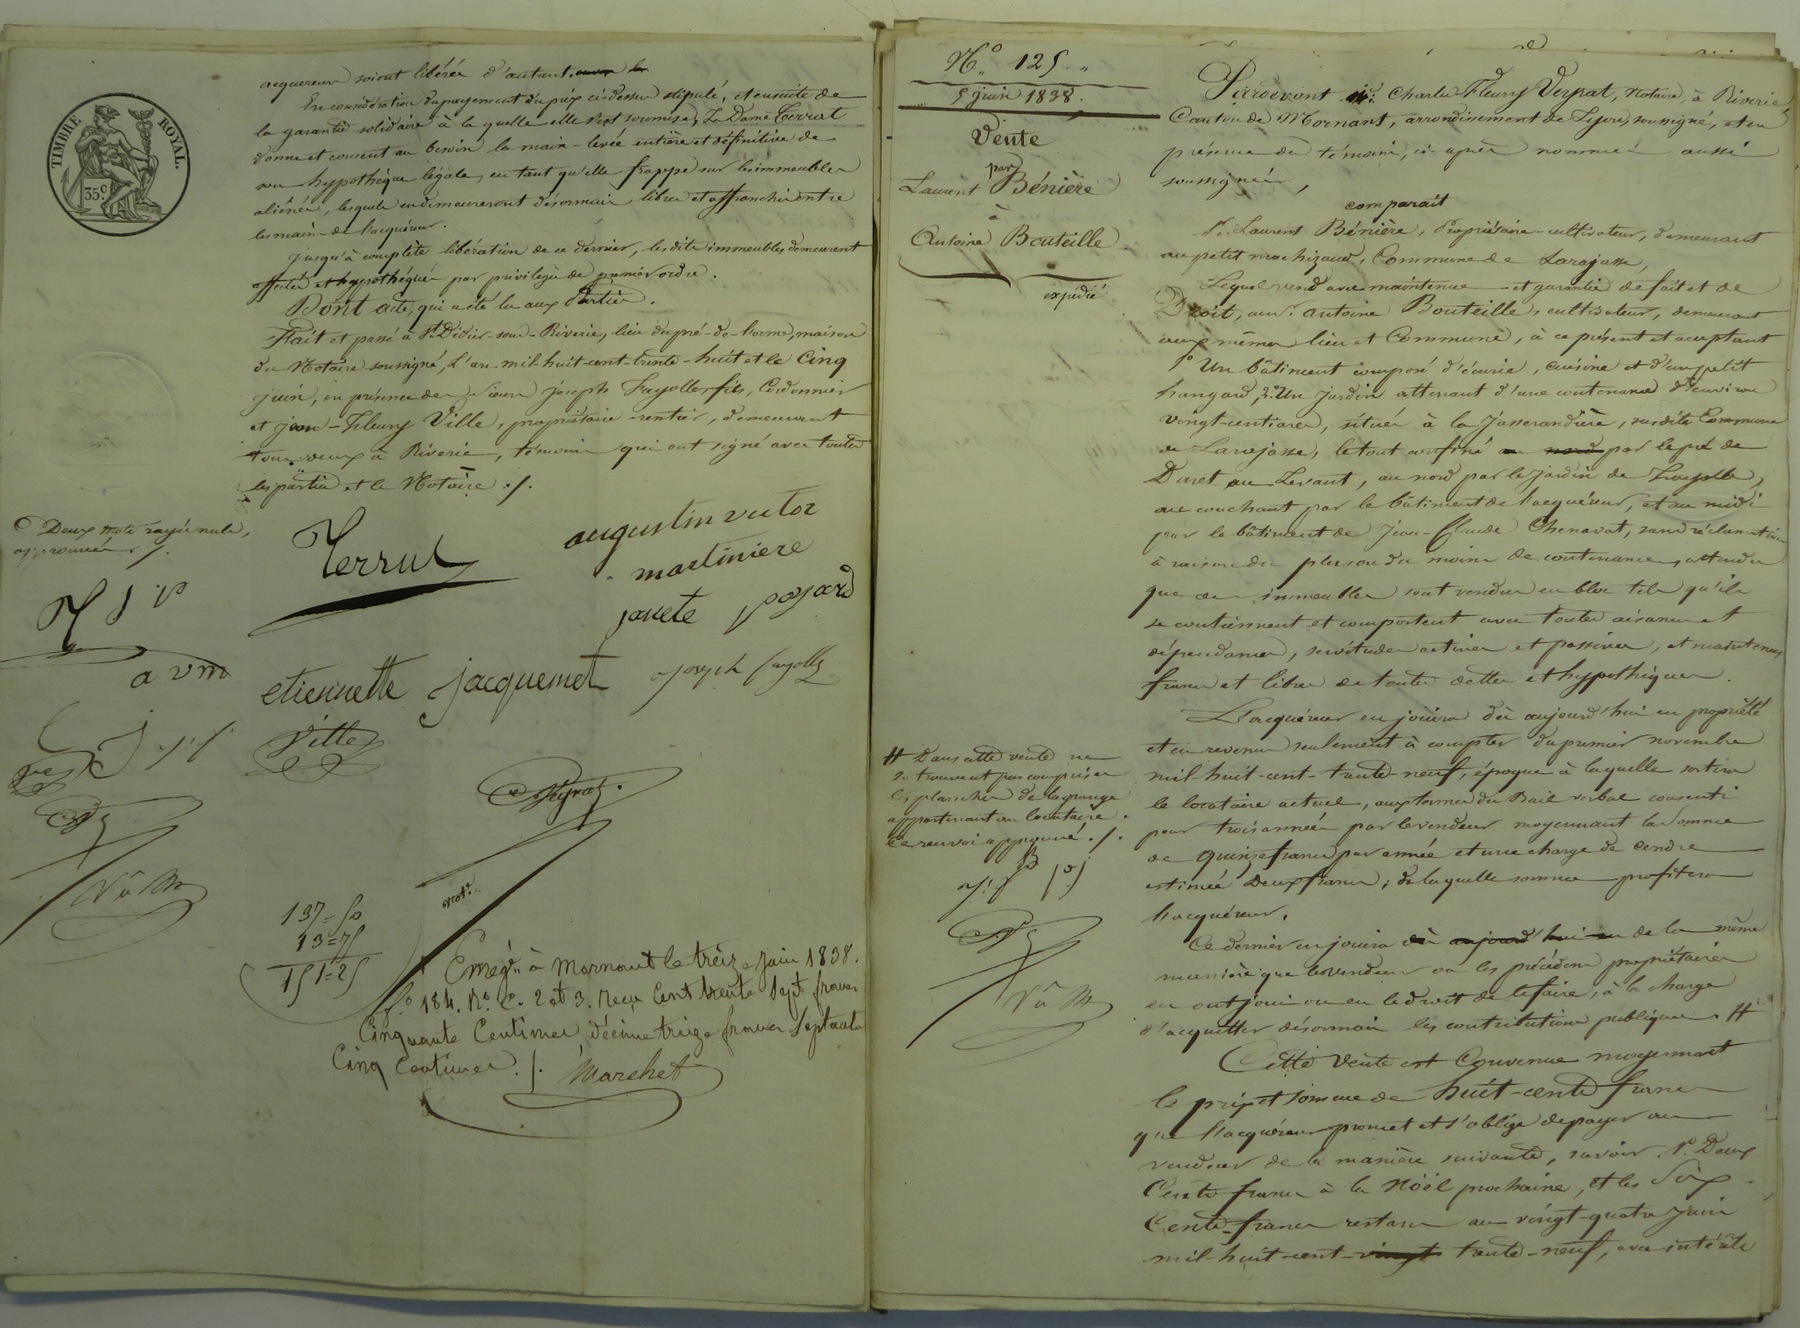 TIMBRE ROYAL.
35c
acquéreur soient libérés d'autant
En considération du payement du prix ci-dessus stipulé, et ensuite de
la garantie solidaire à la quelle elle s'est soumise, La Dame Terrat
donne et consent au besoin la main-levée entière et définitive de
son hypothèque légale, en tant qu'elle frappe sur les immeubles
aliénés, lesquels en demeureront désormais libres et affranchis entre
les mains de l'acquéreur.
Jusqu'à complète libération de ce dernier, les dits immeubles demeurent
affectés et hypothéqués par privilège de premier ordre.
Dont acte, qui a été lu aux Parties.
Fait et passé à St Didier-sous-Riverie, lieu du pré-de-lorme, maison
du Notaire soussigné, L'an mil-huit-cent-trente-huit et le Cinq
juin, en présence de Sieurs joseph Fayolle, fils, Cordonnier
et jean-Fleury Ville, propriétaire rentier, demeurant
tous deux à Riverie, témoins qui ont signé avec toutes
les parties et le Notaire ./.
Deux mots rayés nuls,
approuvés ./.
Terrat
augustin victor
martiniere
payard
a v m
etiennette jacquemet
joseph fayolle
Ville
not.
V a M
137=50
13=75
151=25
Enregé à Mornant le treize Juin 1838.
fo 184. Ro. C. 2 et 3. reçu Cent trente Sept francs
Cinquante Centimes, décime treize francs Septante
Cinq Centimes ./. Marchet
No 125.
5 juin 1838.
Vente
par
Laurent Bénière
à
Antoine Bouteille
expédié
Pardevant Me Charles Fleury Veyrat, Notaire, à Riverie,
Canton de Mornant, arrondissement de Lyon, soussigné, et en
présence des témoins, ci-après nommés aussi
soussignés,
comparait
Sr. Laurent Bénière, Propriétaire-cultivateur, demeurant
au petit machizaud, Commune de Larajasse,
Lequel vend avec maintenue et garantie de fait et de
Droit, au Sr. antoine Bouteille, cultivateur, demeurant
aux mêmes lieu et Commune, à ce présent et acceptant
1o Un bâtiment composé d'écurie, cuisine et d'un petit
hangard, 2o Un jardin attenant d'une contenance d'environ
vingt-centiares, situés à la Jasserandière, susdite Commune
de Larajasse, le tout confiné au nord par le pré de
Duret au Levant, au nord par le jardin de Fayolle,
au couchant par le bâtiment de l'acquéreur, et au midi
par le bâtiment de Jean-Claude Chenavat, sans réclamation
à raison du plus ou du moins de contenance, attendu
que ces immeubles sont vendus en bloc tels qu'ils
se contiennent et comportent avec toutes aisances et
dépendances, servitudes actives et passives, et maintenus
francs et libres de toutes dettes et hypothèques.
L'acquéreur en jouira dès aujourd'hui en propriété
et en revenus seulement à compter du premier novembre
mil-huit-cent-trente-neuf, époque à laquelle sortira
le locataire actuel, aux termes du Bail verbal consenti
pour trois années par le vendeur moyennant la somme
de quinze francs par année et une charge de cendre
estimée Deux francs; de laquelle somme profitera
l'acquéreur.
Ce dernier en jouira dès aujourd'hui en de la même
manière que le vendeur ou les précédens propriétaires
en ont joui ou eu le droit de le faire, à la charge
d'acquitter désormais les contributions publiques. #
Cette vente est Convenue moyennant
le prix et somme de huit-cents francs
que l'acquéreur promet et s'oblige de payer au
vendeur de la manière suivante, savoir. 1o Deux
Cents francs à la Noël prochaine, et les Six
Cents-francs restans au vingt-quatre juin
mil-huit-cent-vingt trente-neuf, avec intérêts
# Dans cette vente ne
se trouvent pas compris
les planches de la grange
appartenant au locataire.
Ce renvoi approuvé ./.
V a M